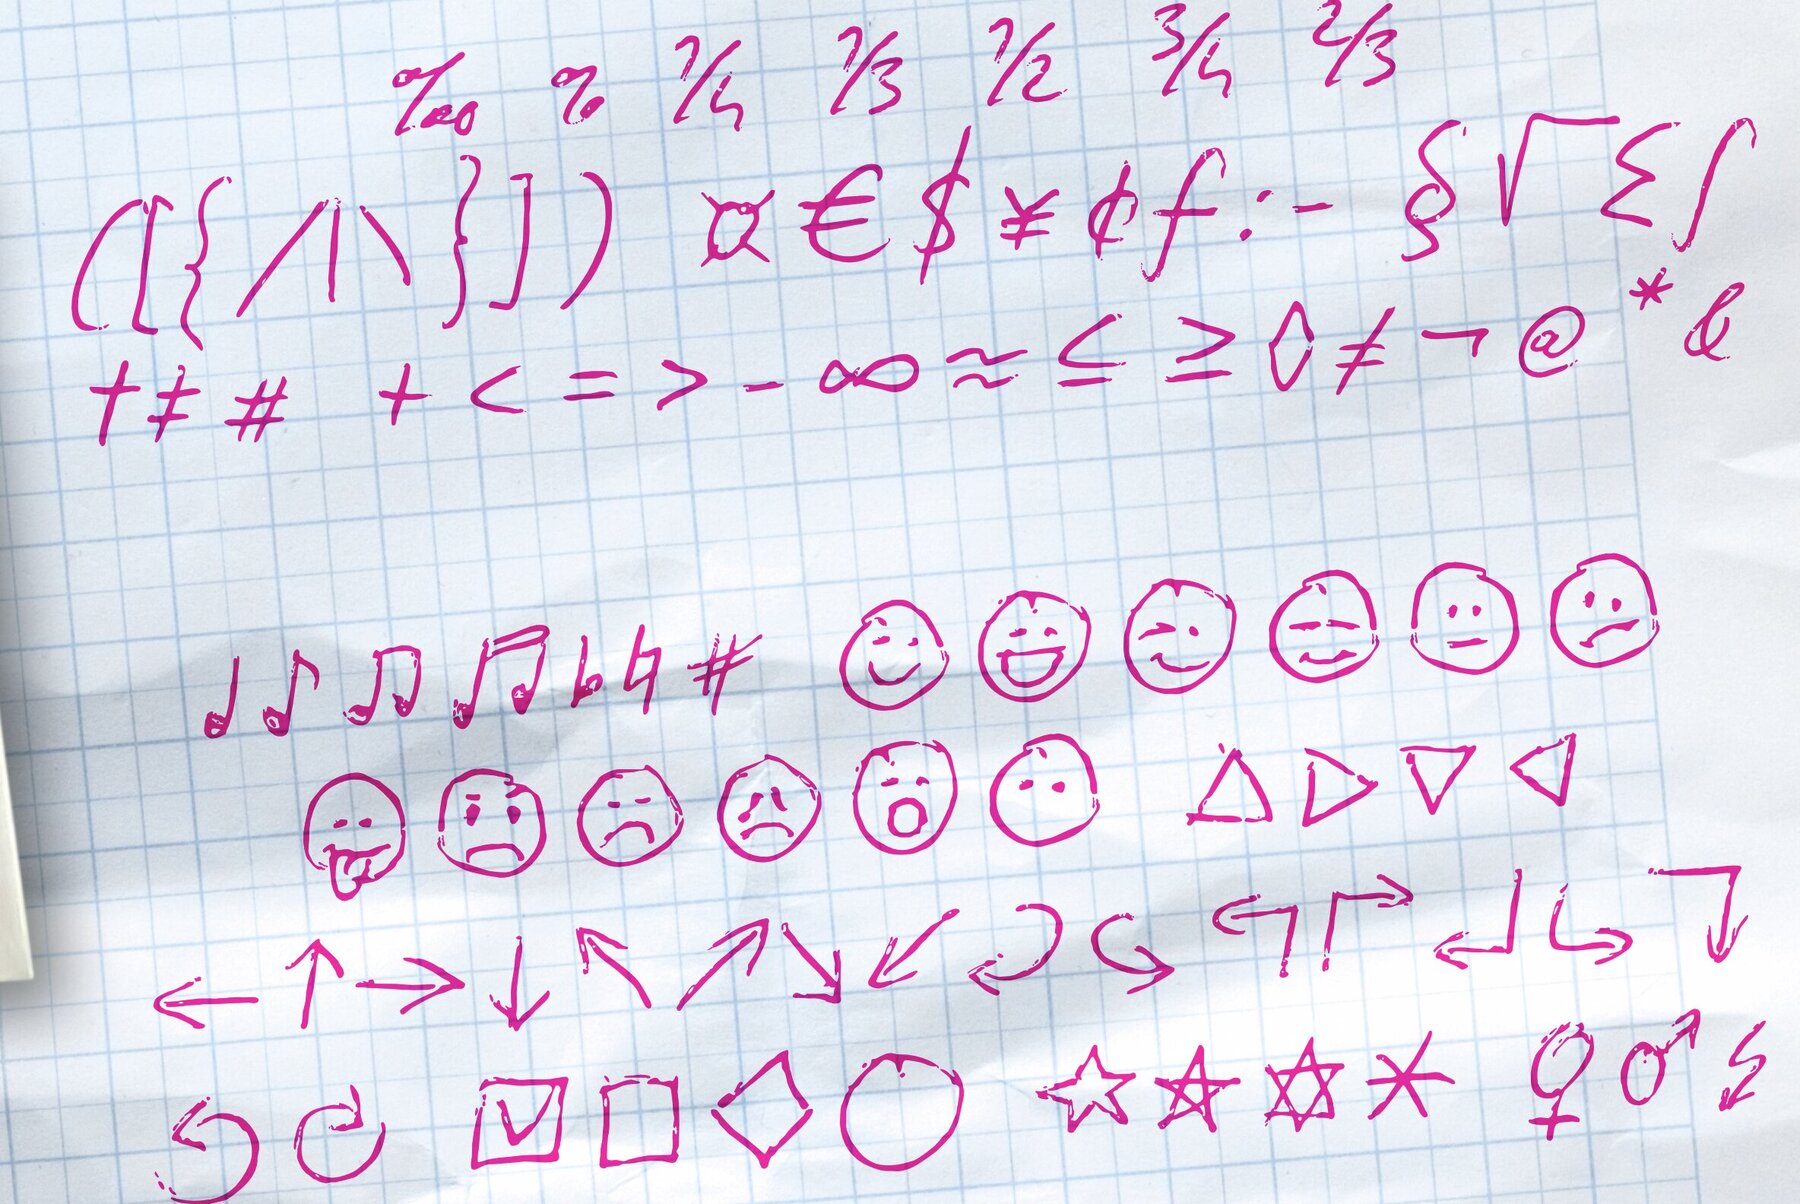 ‰ % 1/4 1/3 1/2 3/4 2/3
( [ { / | \ } ] ) ¤ € $ ¥ ¢ ƒ : - § √ Σ ∫
† ‡ # + < = > - ∞ ≈ ≤ ≥ ◊ ≠ ¬ @ * &
♩ ♪ ♫ ♬ ♭ ♮ #
← ↑ → ↓ ↖ ↗ ↘ ↙
☑ □ ◇ ○ ☆ ✡ ♀ ♂